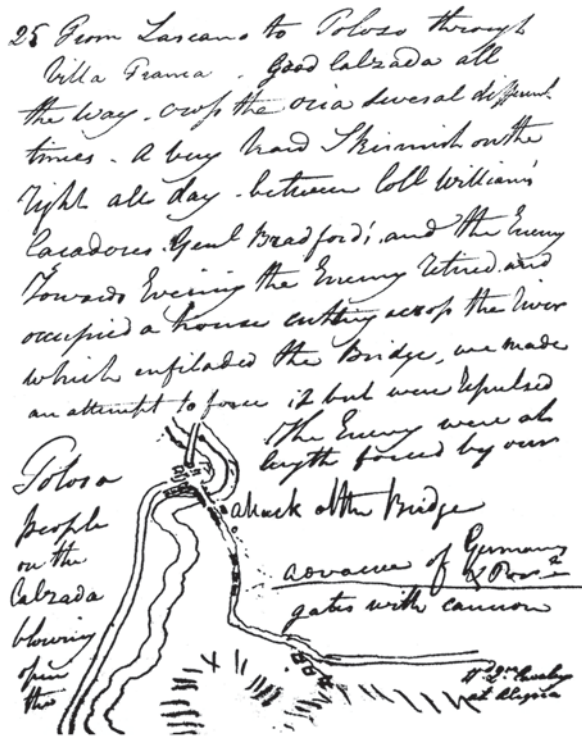 25 From Lascano to Toloso through
Villa Franca. Good Calzada all
the way. cross the oria several different
times. A very hard Skirmish on the
right all day. between Coll William's
Cacadores. Genl Bradford's, and the Enemy
Towards Evening the Enemy retired and
occupied a house cutting across the river
which enfiladed the Bridge, we made
an attempt to force it but were repulsed
The Enemy were at
length forced by our
attack of the Bridge
advance of Germans
gates with cannon
Tolosa
people
on the
Calzada
blowing
open
the
at Alegria